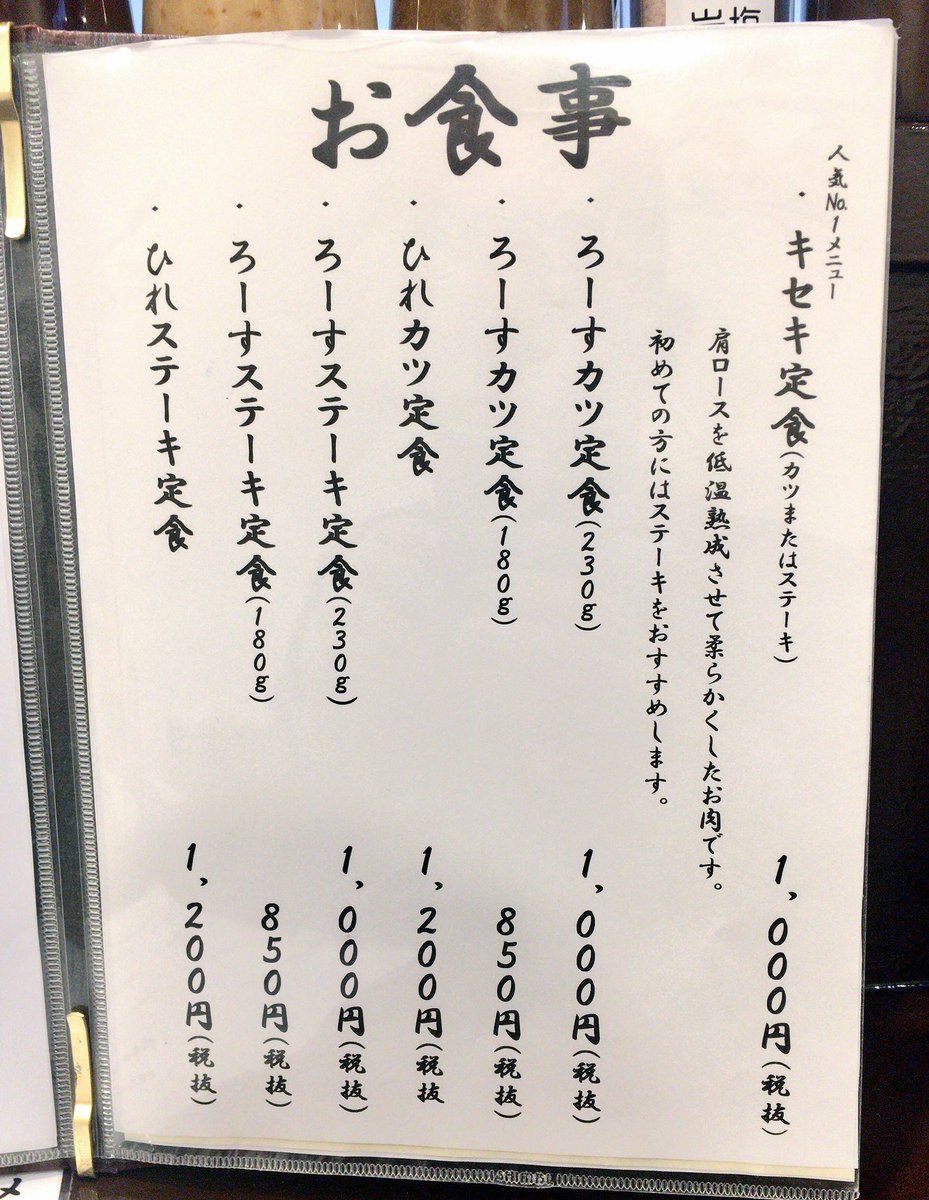 岩塩
お食事
人気No.1メニュー
・キセキ定食(カツまたはステーキ) 1,000円(税抜)
肩ロースを低温熟成させて柔らかくしたお肉です。
初めての方にはステーキをおすすめします。
・ろーすカツ定食(230g) 1,000円(税抜)
・ろーすカツ定食(180g) 850円(税抜)
・ひれカツ定食 1,200円(税抜
・ろーすステーキ定食(230g) 1,000円(税抜)
・ろーすステーキ定食(180g) 850円(税抜)
・ひれステーキ定食 1,200円(税抜)
メ